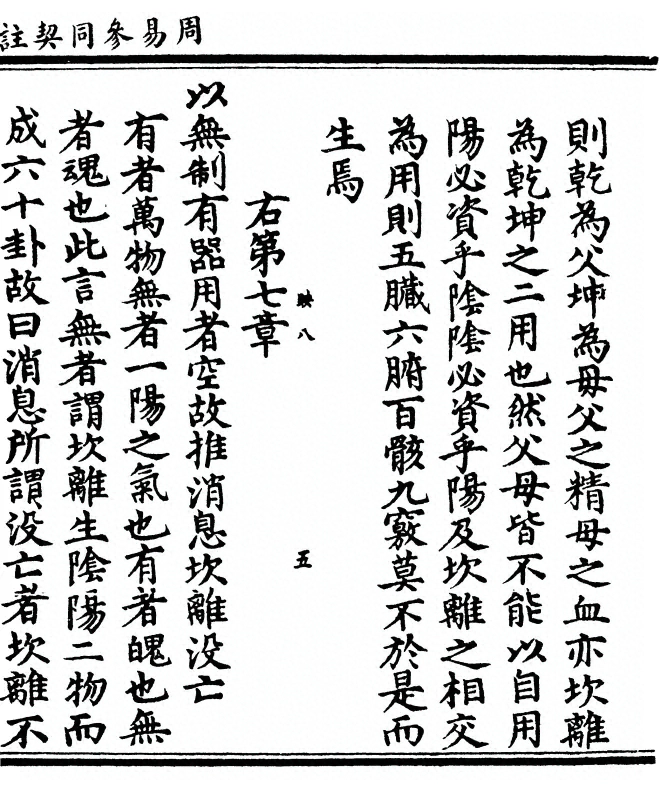 周易參同契註
則乾為父坤為母父之精母之血亦坎離
為乾坤之二用也然父母皆不能以自用
陽必資乎陰陰必資乎陽及坎離之相交
為用則五臟六腑百骸九竅莫不於是而
生焉
右第七章
映八
五
以無制有器用者空故推消息坎離没亡
有者萬物無者一陽之氣也有者魄也無
者魂也此言無者謂坎離生陰陽二物而
成六十卦故曰消息所謂没亡者坎離不